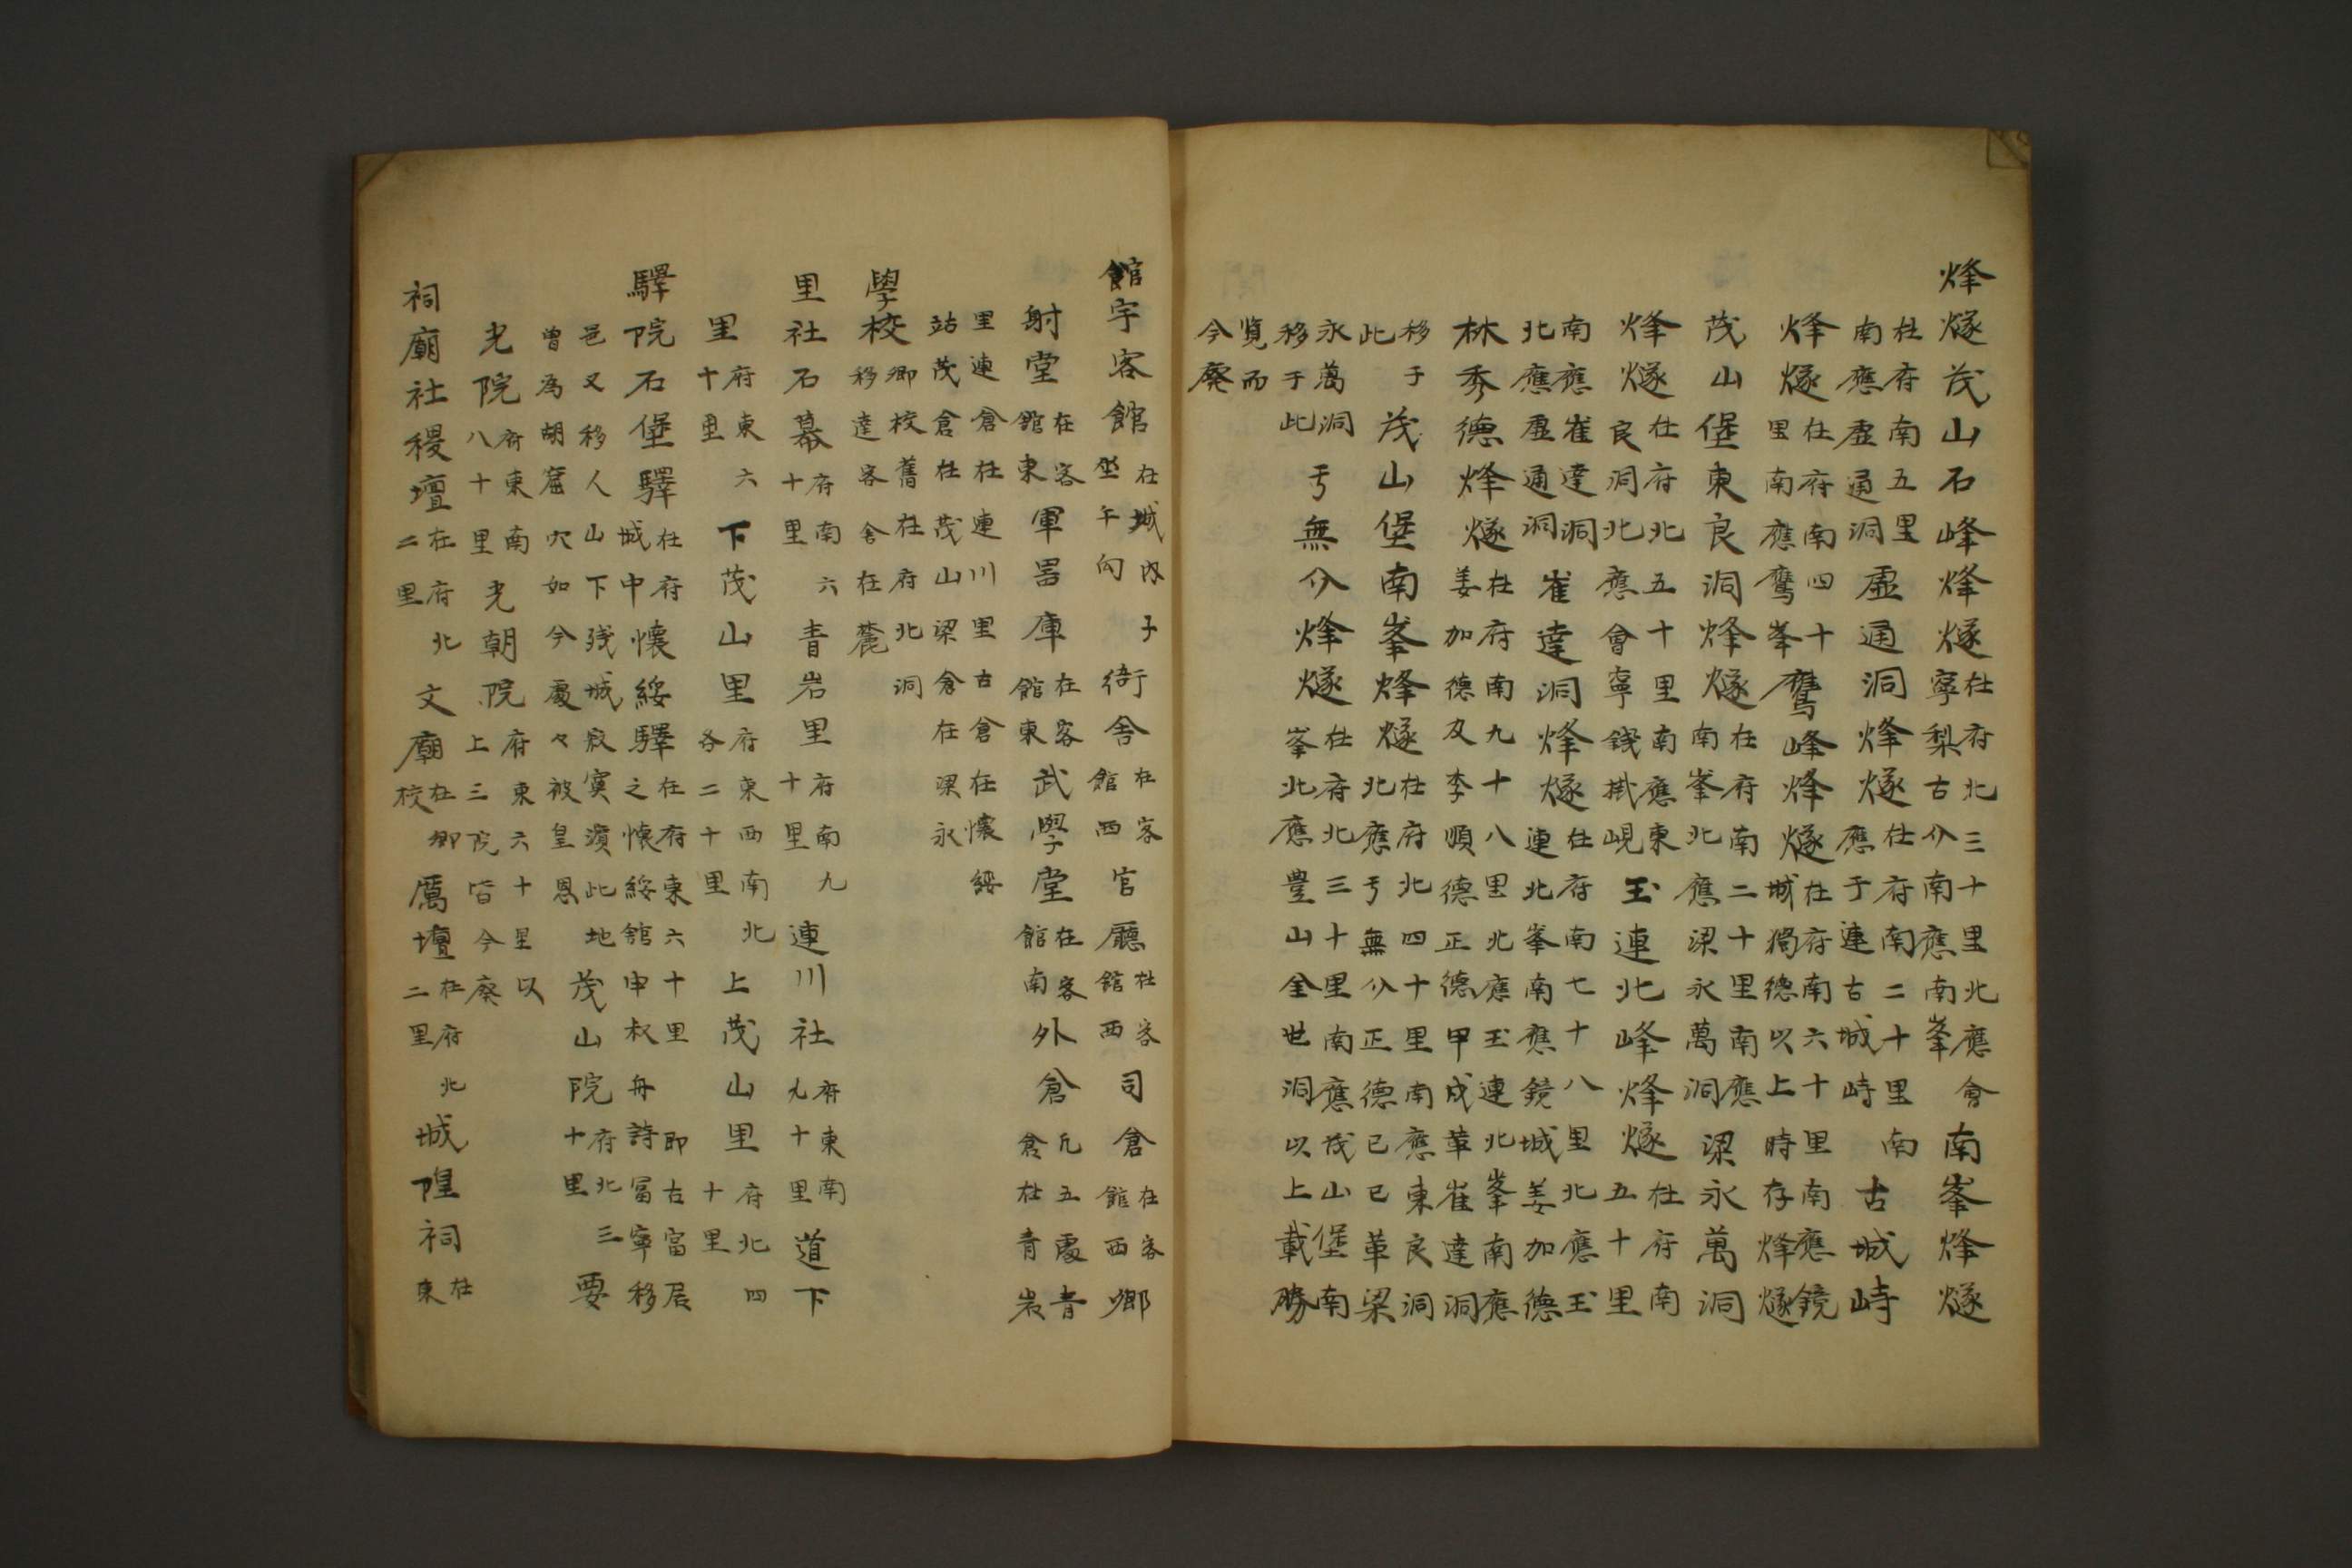 烽燧茂山石峰烽燧在府北三十里北應會寧梨古介南應南峯南峯烽燧
在府南五里南應虛通洞虛通洞烽燧在府南二十里南應于連古城峙古城峙
烽燧在府南四十里南應鷹峯鷹峰烽燧在府南六十里南應鏡城獨德以上時存烽燧
茂山堡東良洞烽燧在府南二十里南應南峯北應梁永萬洞梁永萬洞
烽燧在府北五十里南應東良洞北應會寧錢掛峴玉連北峰烽燧在府南五十里
南應崔達洞北應虛通洞崔達洞烽燧在府南七十八里北應玉連北峯南應鏡城姜加德
林秀德烽燧在府南九十八里北應玉連北峯南應姜加德及李順德正德甲戌革崔達洞
移于此茂山堡南峯烽燧在府北四十里南應東良洞北應亏無介正德己巳革梁
永萬洞移于此亏無介烽燧在府北三十里南應茂山堡南峯北應豊山全世洞以上載勝
覽而今廢
館宇客館在城內子坐午向衙舍在客館西官廳在客館西司倉在客館西鄉
射堂在客館東軍器庫在客館東武學堂在客館南外倉凡五處青岩倉在青岩
里連倉在連川里古倉在懷綏站茂倉在茂山梁倉在梁永
學校鄉校舊在府北洞移達客舍在麓
里社石幕府南六十里青岩里府南九十里連川社府東南九十里道下
里府東六十里下茂山里府東西南北各二十里上茂山里府北四十里
驛院石堡驛在府城中懷綏驛在府東六十里之懷綏舘申叔舟詩卽古富居富寧移
邑又移人山下殘城寂寞濱此地曾爲胡窟穴如今處々被皇恩茂山院府北三十里要
光院府東南八十里光朝院府東六十里以上三院皆今廢
祠廟社稷壇在府北二里文廟在鄉校厲壇在府北二里城隍祠在東